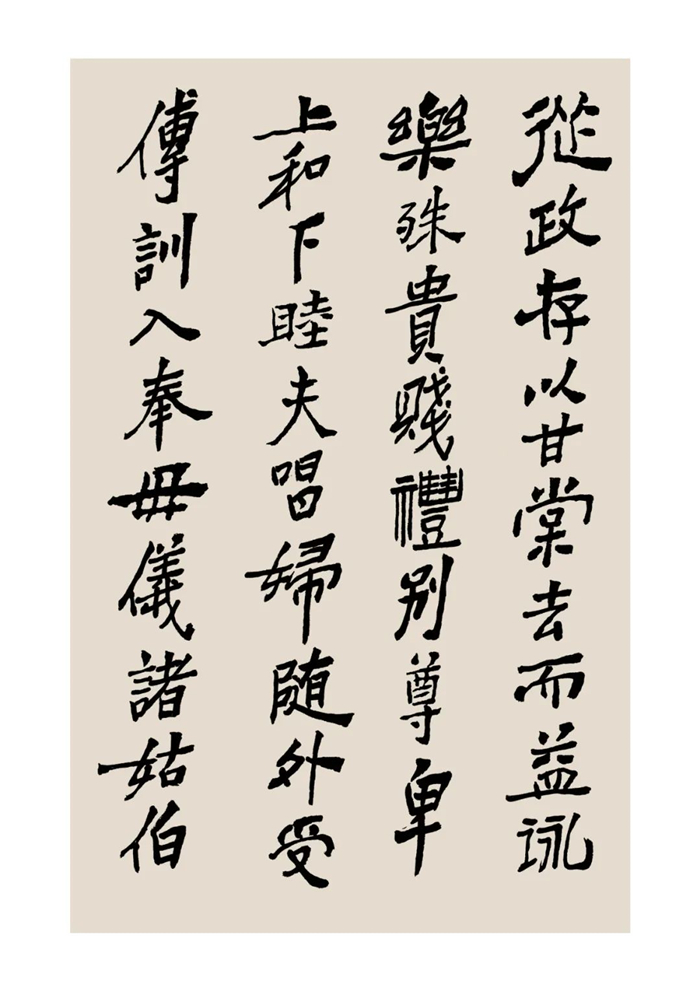 從政存以甘棠去而益詠
樂殊貴賤禮別尊卑
上和下睦夫唱婦随外受
傅訓入奉毋儀諸姑伯